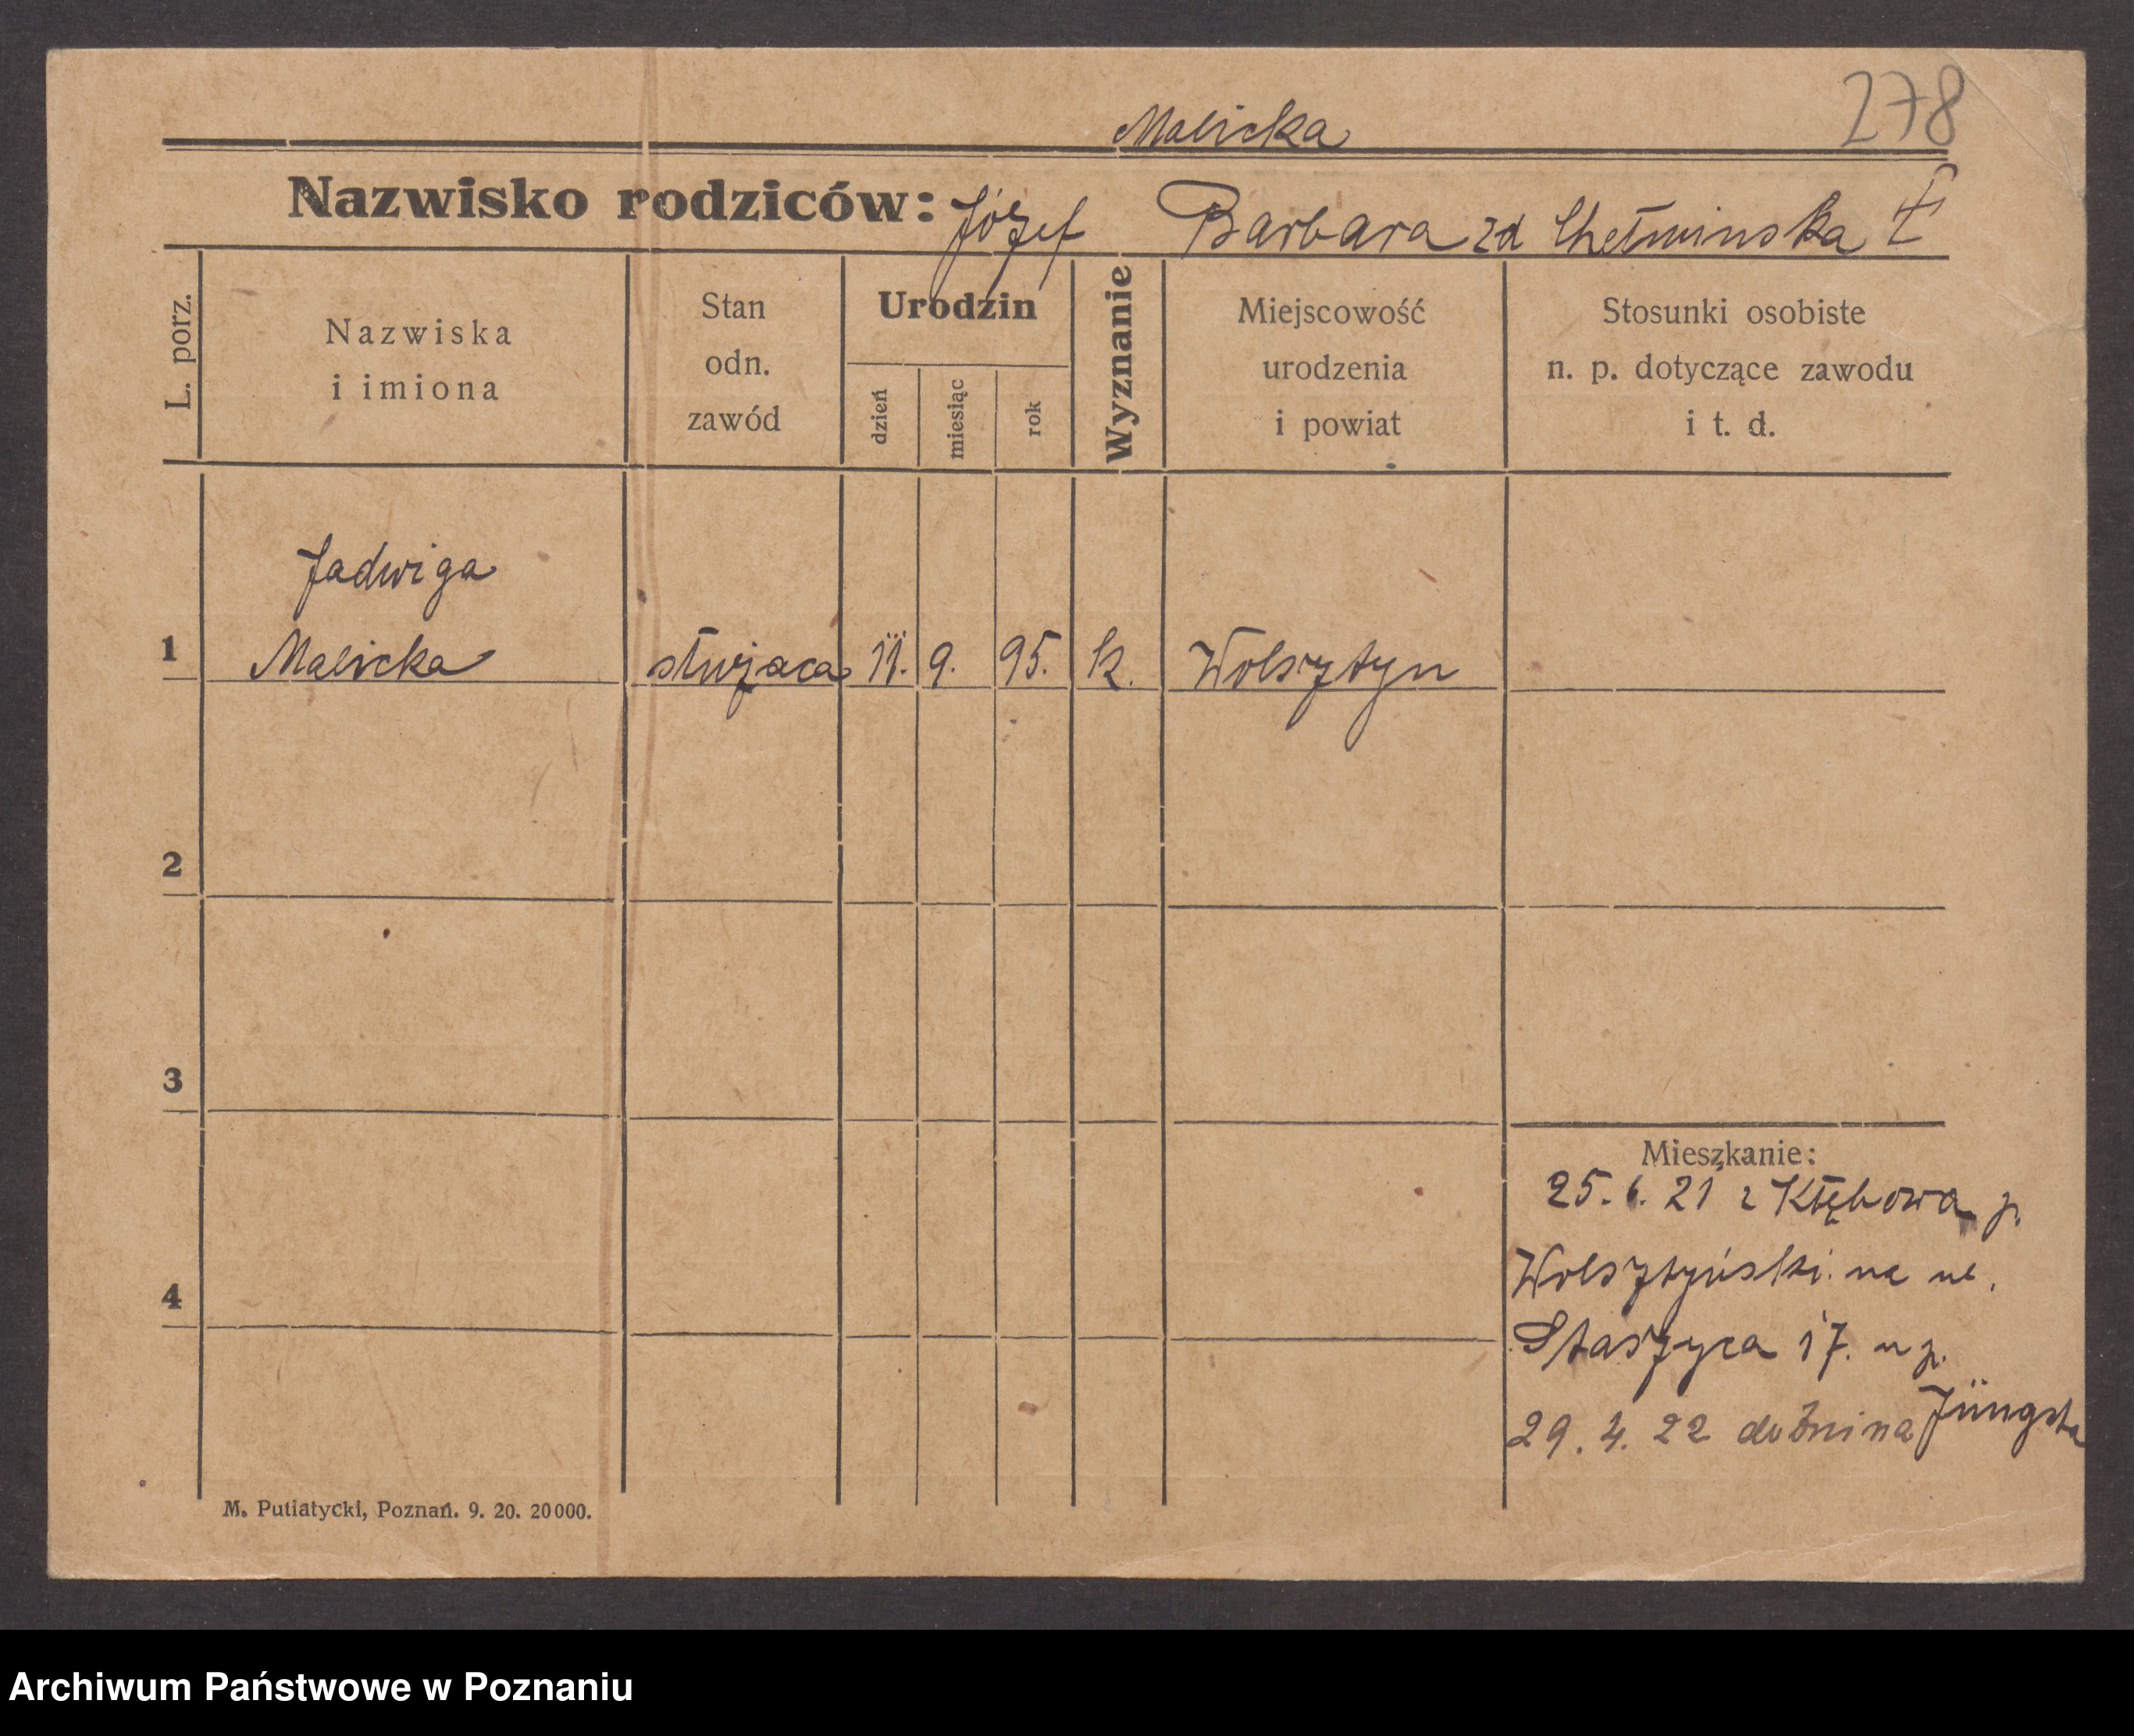 278
Malicka
Nazwisko rodziców: Józef Barbara zd Chełminska
L. porz.
Nazwiska
i imiona
Stan
odn.
zawód
Urodzin
dzień
miesiąc
rok
Wyznanie
Miejscowość
urodzenia
i powiat
Stosunki osobiste
n. p. dotyczące zawodu
i t. d.
Jadwiga
1 Malicka służaca 11. 9. 95. k. Wolsztyn
2
3
Mieszkanie:
25. 6. 21 z Kłębowa p.
Wolsztyński na ul.
4
Staszyca 17. u p.
Jüngsta
29. 4. 22 do Żnina
M. Putiatycki, Poznań. 9. 20. 20000.
Archiwum Państwowe w Poznaniu